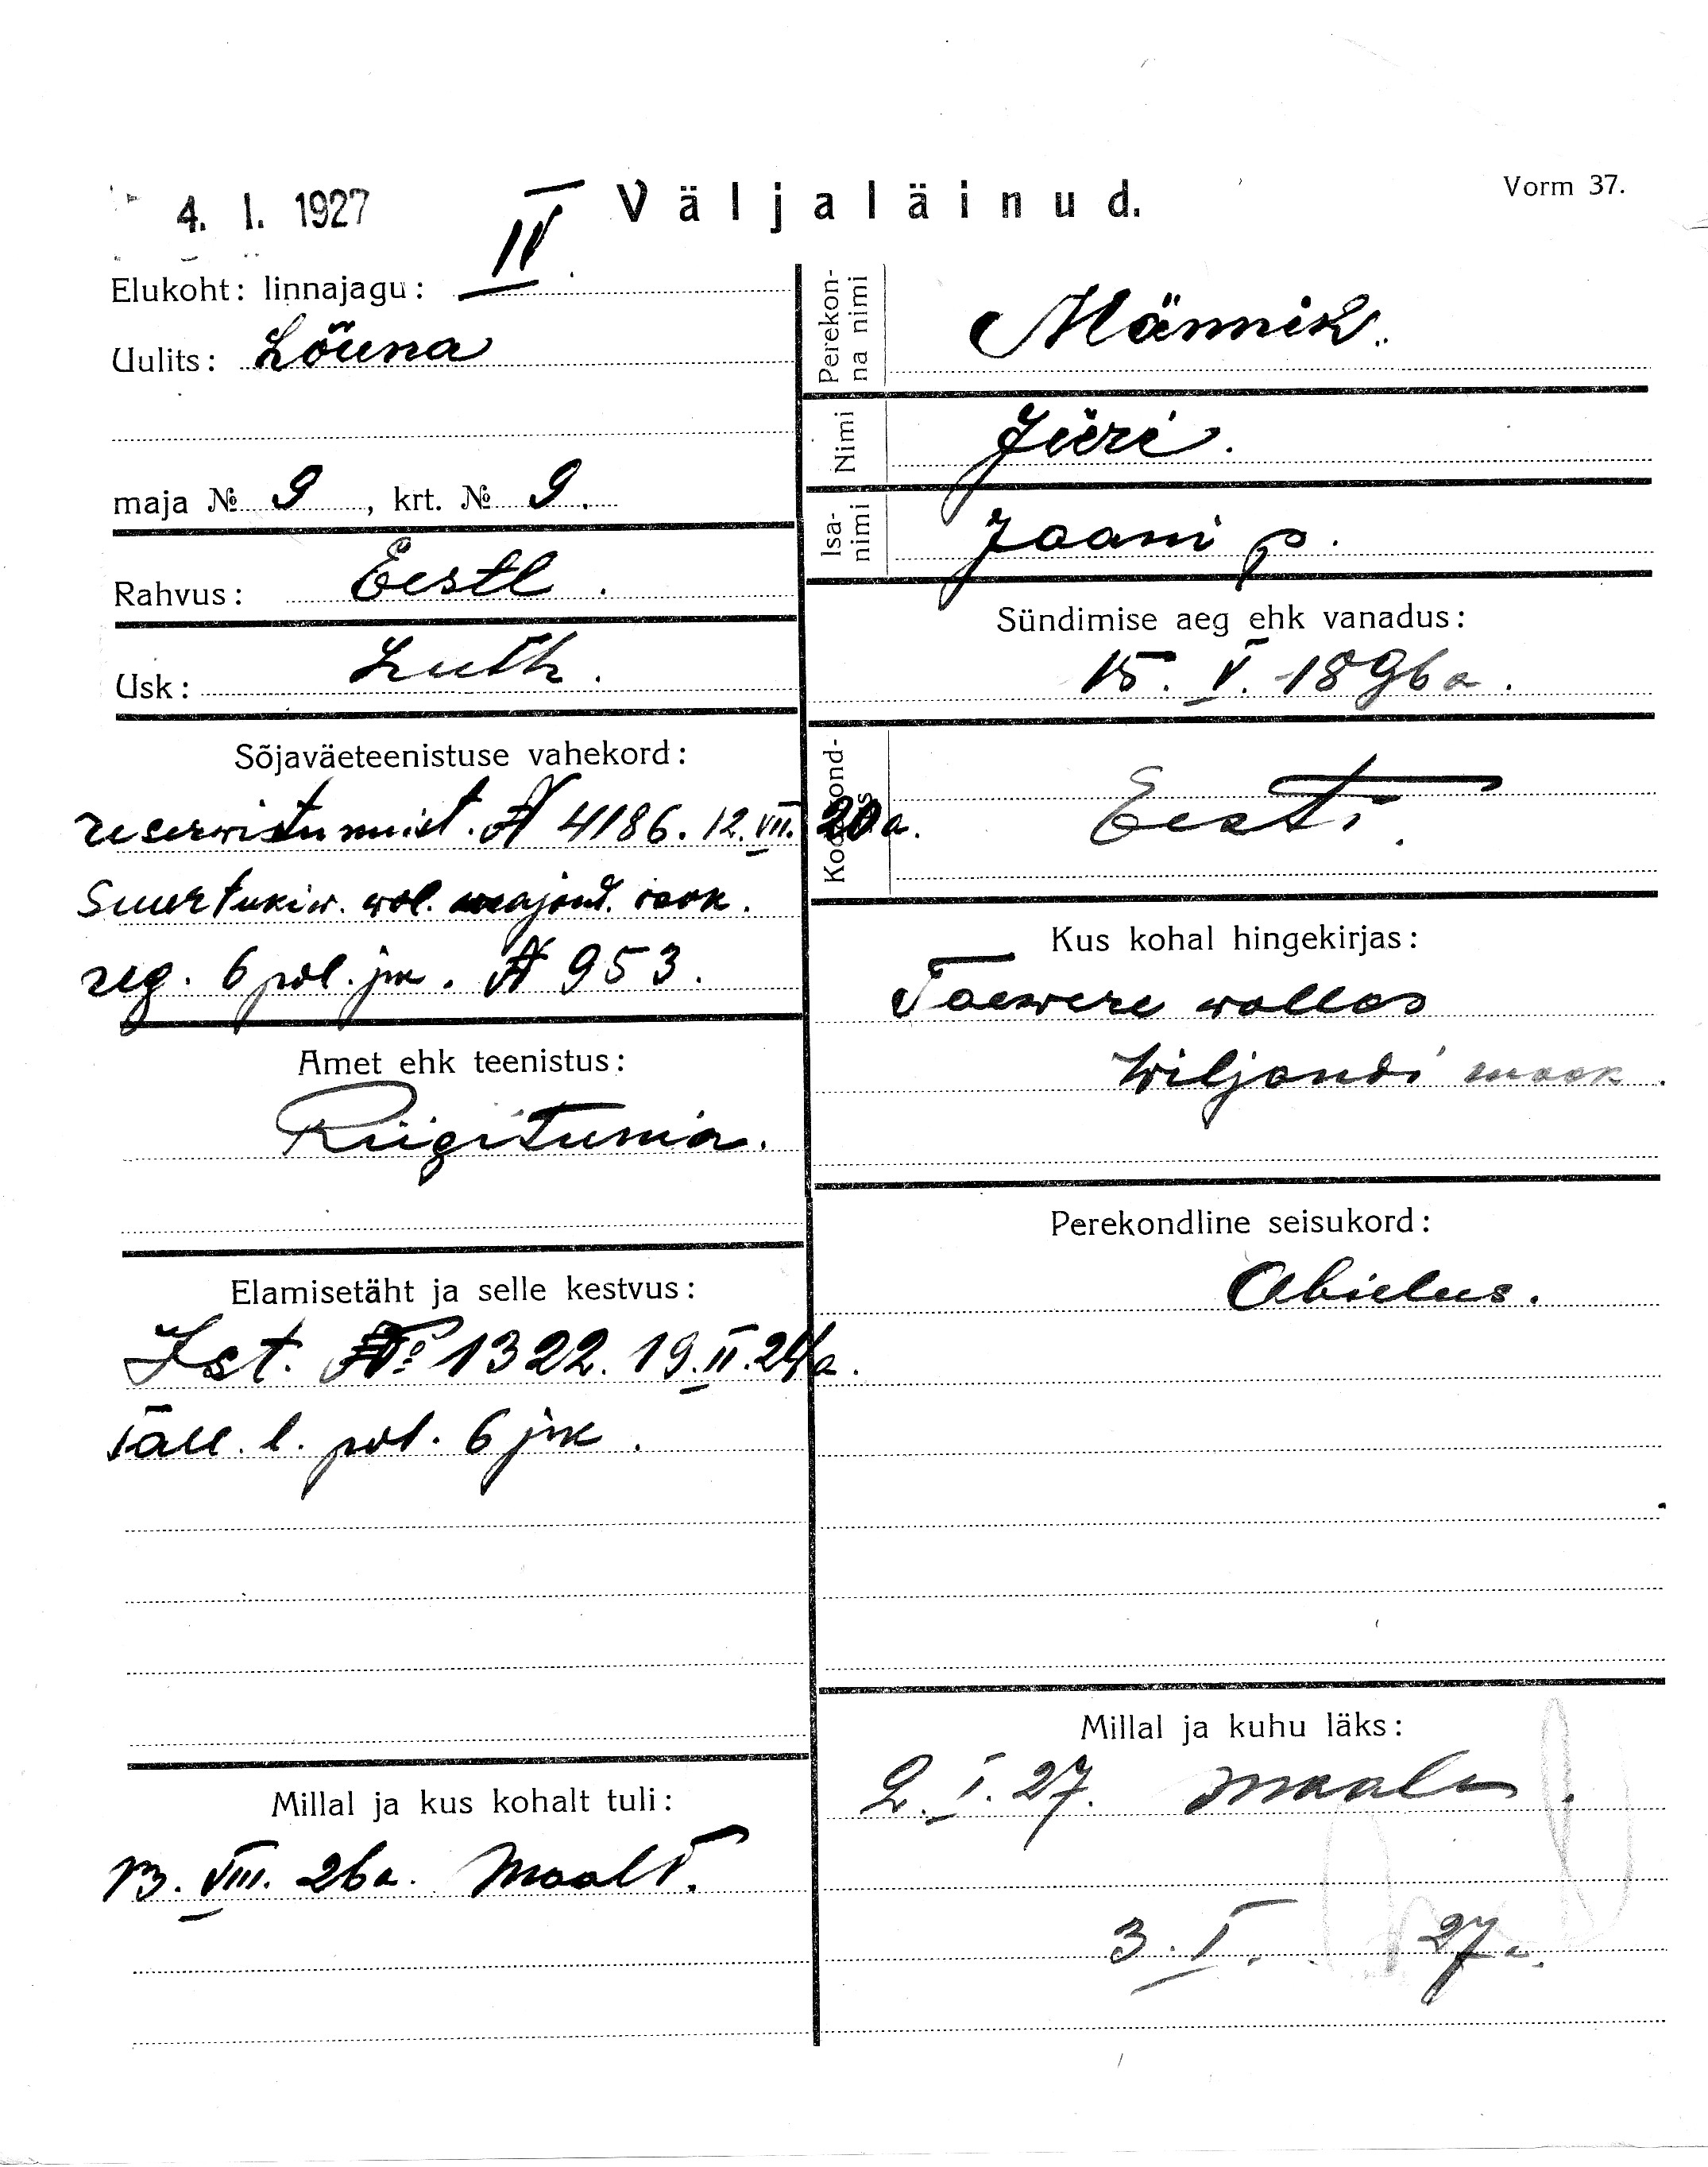 4. I. 1927
Väljaläinud.
Vorm 37.
Elukoht: linnajagu: IV
Uulits: Lõuna
maja № 9, krt. № 9.
Rahvus: Eestl.
Usk: Luth.
Sõjaväeteenistuse vahekord:
reserwistunnist. № 4186. 12.VII.20a.
Suurtükiw. wal. majand. osak.
reg. 6 pol. jsk. № 953.
Amet ehk teenistus:
Riigiteenia.
Elamisetäht ja selle kestvus:
Ist. № 1322. 19.II.24a.
Tall. l. pol. 6 jsk.
Millal ja kus kohalt tuli:
13. VIII. 26a. Maalt.
Perekonna nimi
Männik.
Nimi
Jüri.
Isanimi
Jaani p.
Sündimise aeg ehk vanadus:
15. V. 1896a.
Eesti.
Kus kohal hingekirjas:
Taewere wallas
Wiljandi maak.
Perekondline seisukord:
Abielus.
Millal ja kuhu läks:
2. I. 27. maale.
3. I. 27a.